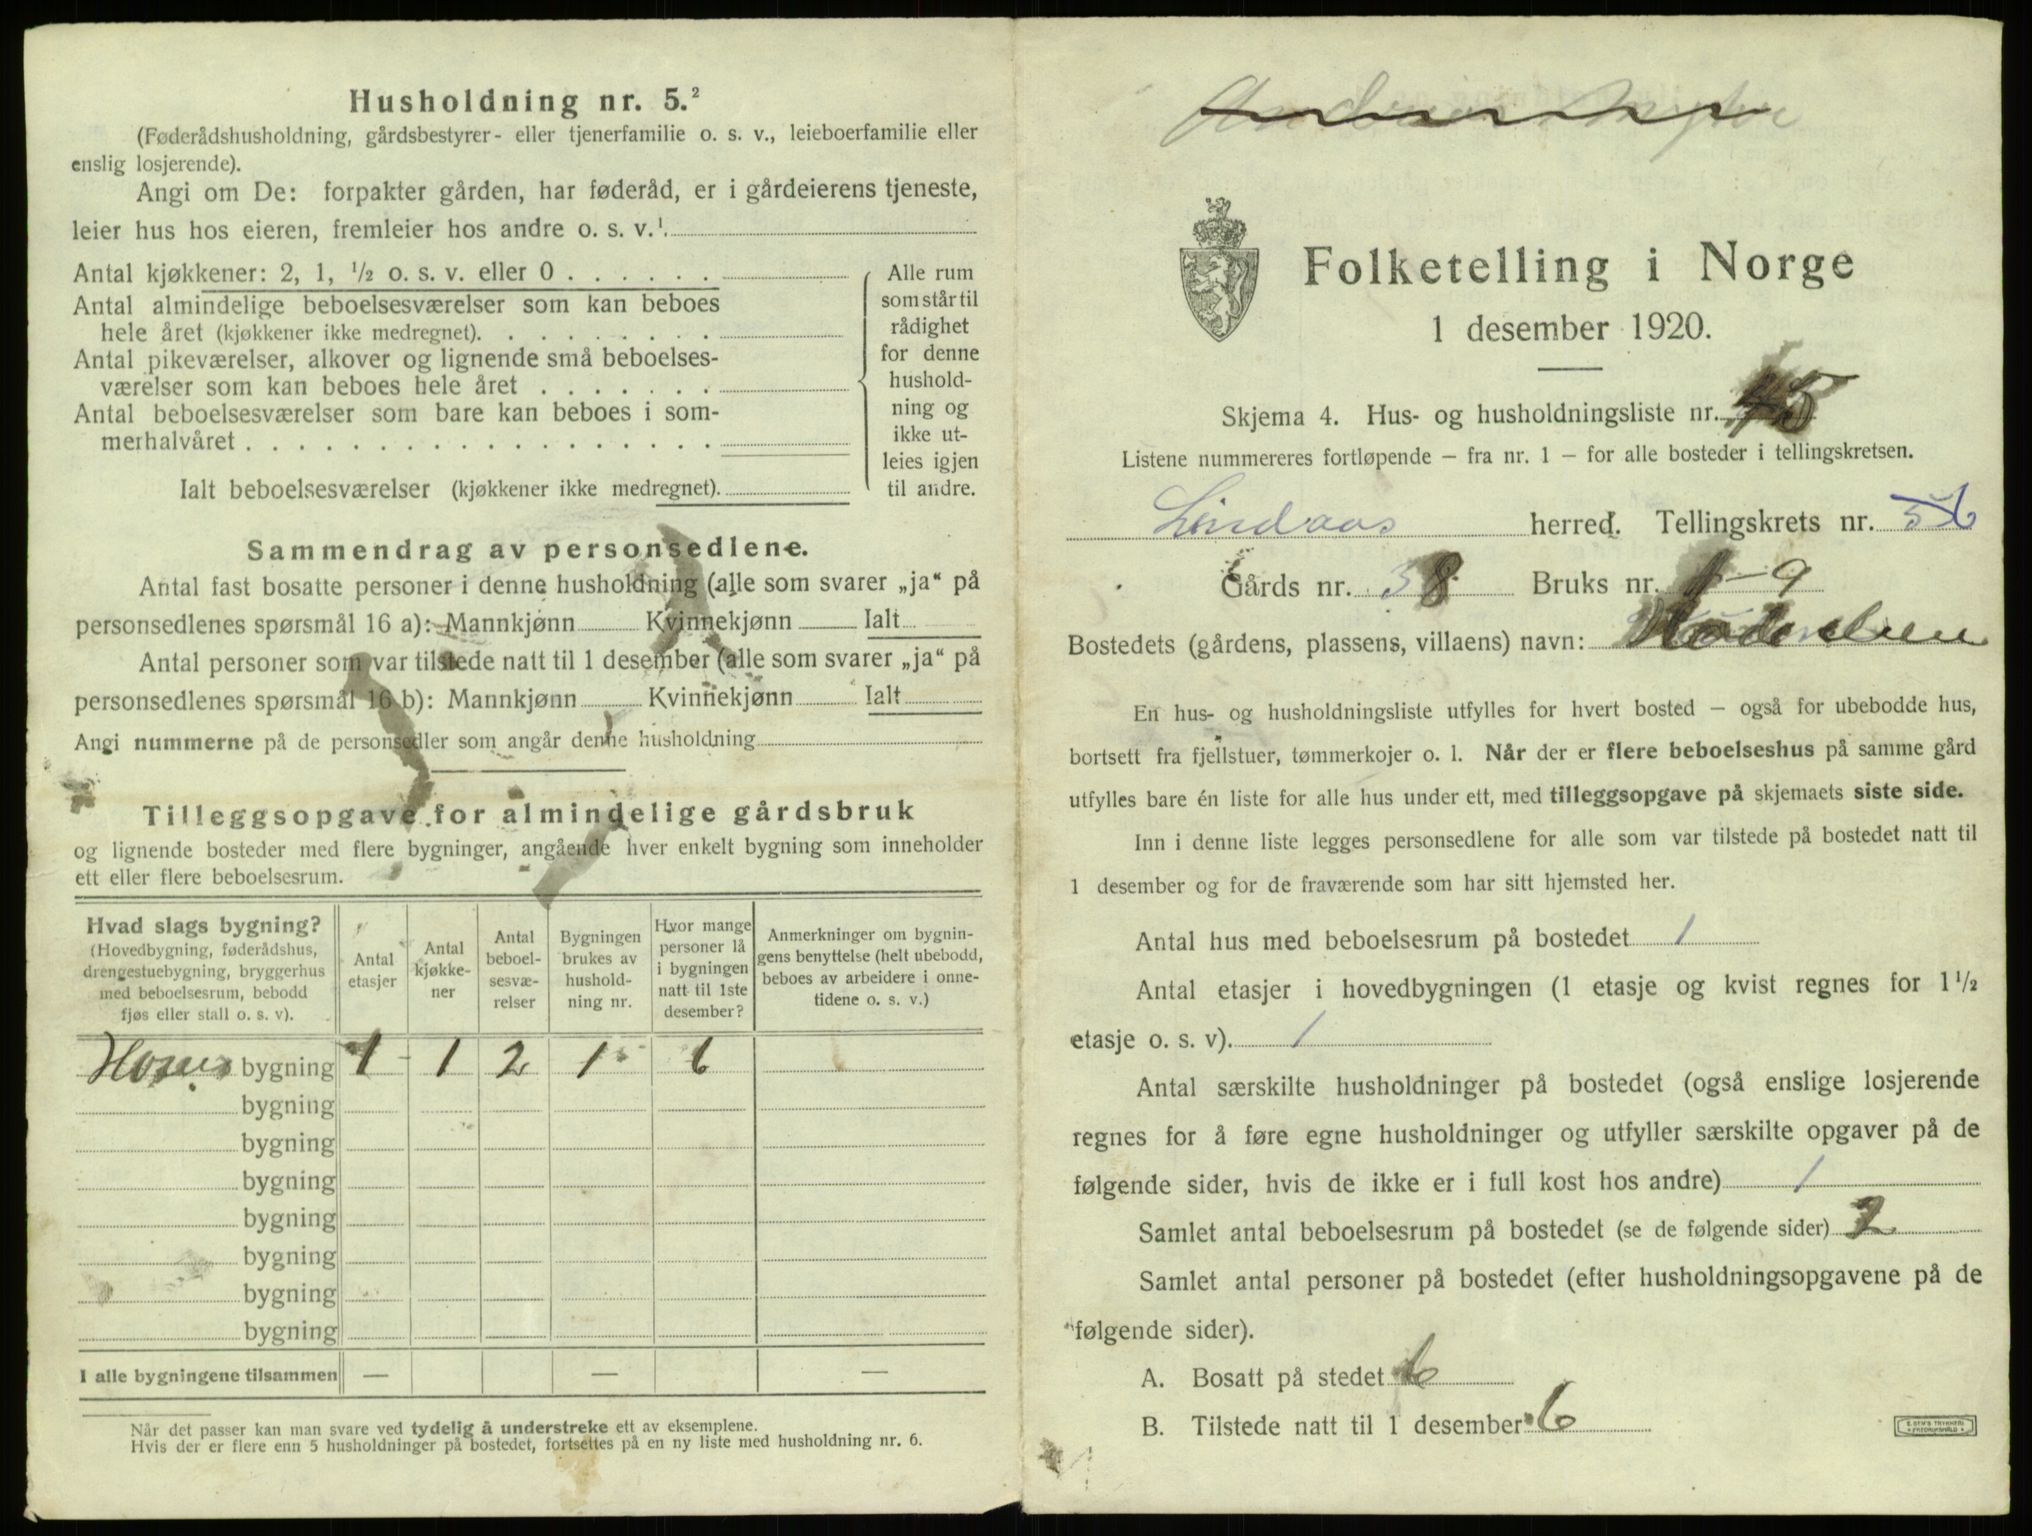 Husholdning nr. 5.²
(Føderådshusholdning, gårdsbestyrer- eller tjenerfamilie o. s. v., leieboerfamilie eller
enslig losjerende).
Angi om De: forpakter gården, har føderåd, er i gårdeierens tjeneste,
leier hus hos eieren, fremleier hos andre o. s. v.¹.
Antal kjøkkener: 2, 1, ½ o. s. v. eller 0 . . . . . .
Antal almindelige beboelsesværelser som kan beboes
hele året (kjøkkener ikke medregnet). . . . . . . . .
Antal pikeværelser, alkover og lignende små beboelses-
værelser som kan beboes hele året . . . . . . .
Antal beboelsesværelser som bare kan beboes i som-
merhalvåret . . . . . . . . . . . . . . . . . .
Ialt beboelsesværelser (kjøkkener ikke medregnet).
Alle rum
som står til
rådighet
for denne
hushold-
ning og
ikke ut-
leies igjen
til andre.
Sammendrag av personsedlene.
Antal fast bosatte personer i denne husholdning (alle som svarer „ja“ på
personsedlenes spørsmål 16 a): Mannkjønn Kvinnekjønn Ialt
Antal personer som var tilstede natt til 1 desember (alle som svarer „ja“ på
personsedlenes spørsmål 16 b): Mannkjønn Kvinnekjønn Ialt
Angi nummerne på de personsedler som angår denne husholdning
Tilleggsopgave for almindelige gårdsbruk
og lignende bosteder med flere bygninger, angående hver enkelt bygning som inneholder
ett eller flere beboelsesrum.
Hvad slags bygning?
(Hovedbygning, føderådshus,
drengestuebygning, bryggerhus
med beboelsesrum, bebodd
fjøs eller stall o. s. v).
Antal
etasjer
Antal
kjøkke-
ner
Antal
beboel-
sesvæ-
relser
Bygningen
brukes av
hushold-
ning nr.
Hvor mange
personer lå
i bygningen
natt til 1ste
desember?
Anmerkninger om bygnin-
gens benyttelse (helt ubebodd,
beboes av arbeidere i onne-
tidene o. s. v.)
bygning 1 1 2 1 6
bygning
bygning
bygning
bygning
bygning
bygning
bygning
I alle bygningene tilsammen — — —
Når det passer kan man svare ved tydelig å understreke ett av eksemplene.
Hvis der er flere enn 5 husholdninger på bostedet, fortsettes på en ny liste med husholdning nr. 6.
Folketelling i Norge
1 desember 1920.
Skjema 4. Hus- og husholdningsliste nr. 45
Listene nummereres fortløpende — fra nr. 1 — for alle bosteder i tellingskretsen.
Lindaas herred. Tellingskrets nr.
Gårds nr. 38 Bruks nr. 1-9
Bostedets (gårdens, plassens, villaens) navn:
En hus- og husholdningsliste utfylles for hvert bosted — også for ubebodde hus,
bortsett fra fjellstuer, tømmerkojer o. l. Når der er flere beboelseshus på samme gård
utfylles bare én liste for alle hus under ett, med tilleggsopgave på skjemaets siste side.
Inn i denne liste legges personsedlene for alle som var tilstede på bostedet natt til
1 desember og for de fraværende som har sitt hjemsted her.
Antal hus med beboelsesrum på bostedet 1
Antal etasjer i hovedbygningen (1 etasje og kvist regnes for 1½
etasje o. s. v). 1
Antal særskilte husholdninger på bostedet (også enslige losjerende
regnes for å føre egne husholdninger og utfyller særskilte opgaver på de
følgende sider, hvis de ikke er i full kost hos andre) 1
Samlet antal beboelsesrum på bostedet (se de følgende sider) 2
Samlet antal personer på bostedet (efter husholdningsopgavene på de
følgende sider).
A. Bosatt på stedet 6
B. Tilstede natt til 1 desember 6